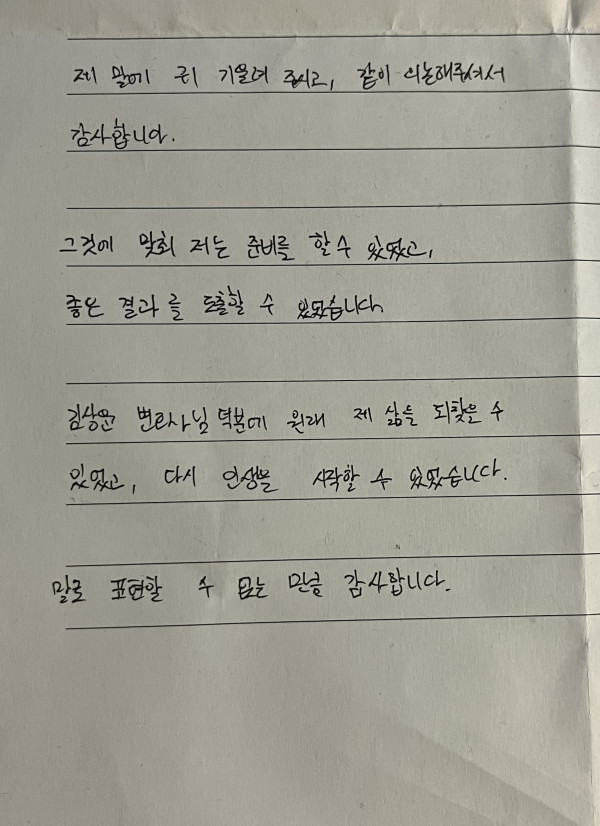 제 말에 귀 기울여 주시고, 같이 의논해주셔서
감사합니다.
그것에 맞춰 저는 준비를 할 수 있었고,
좋은 결과를 도출할 수 있었습니다.
김상윤 변호사님 덕분에 원래 제 삶을 되찾을 수
있었고, 다시 인생을 시작할 수 있었습니다.
말로 표현할 수 없는 만큼 감사합니다.